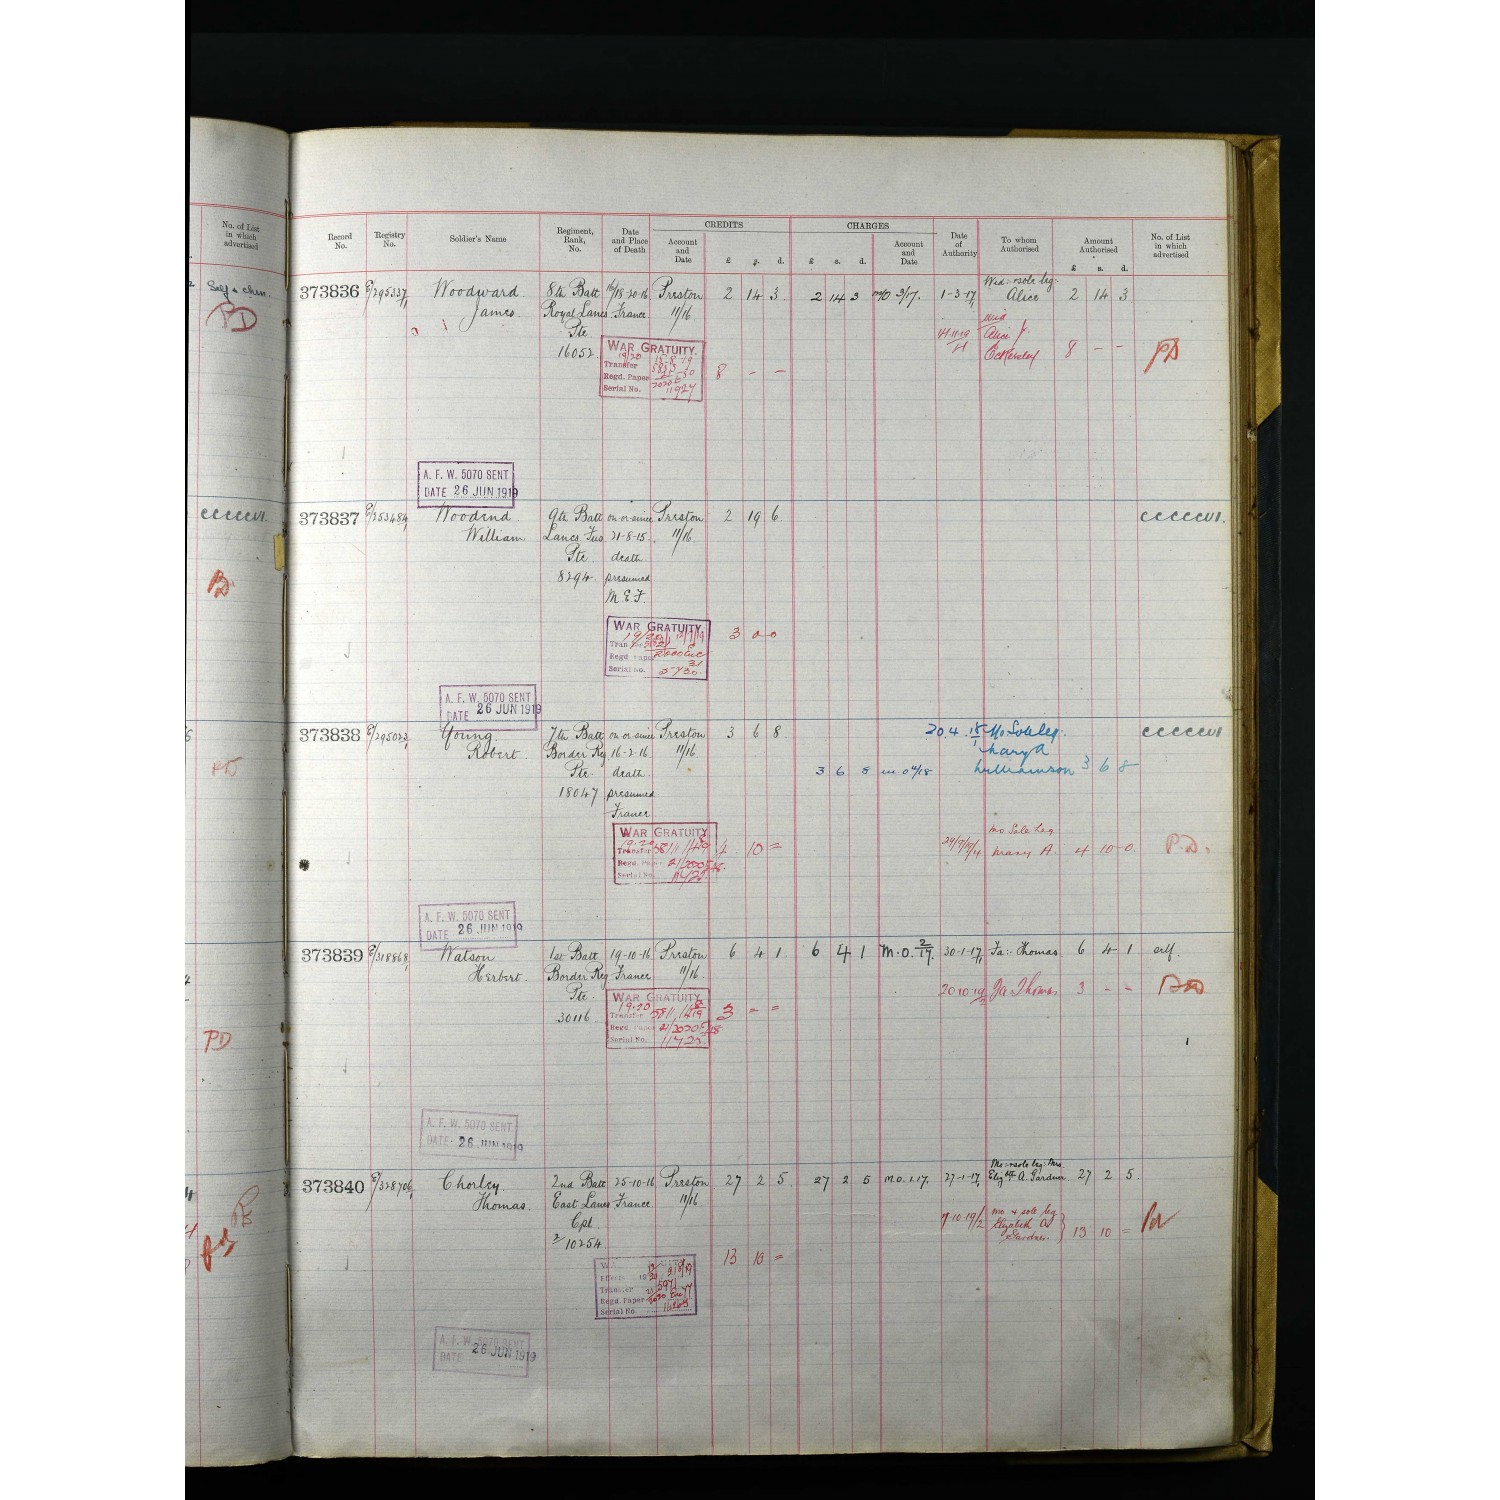 No. of List in which advertised
Self & chen.
PD
cccccvi.
PD
PD
PD
Record No.
Registry No.
Soldier's Name
Regiment, Rank, No.
Date and Place of Death
CREDITS
Account and Date
£ s. d.
CHARGES
£ s. d.
Account and Date
Date of Authority
To whom Authorised
Amount Authorised
£ s. d.
No. of List in which advertised
373836 E/295337 Woodward 8th Batt 16/18-20-16 Preston 2 14 3 2 14 3 MO 3/17. 1-3-17 Wid: & sole leg: Alice 2 14 3
James. Royal Lancs France 11/16
Pte.
16052
WAR GRATUITY.
19/20 15-8-19
Transfer
Regd. Paper
Serial No. 11927
8 - -
Wid Alice
8 - - PD
A. F. W. 5070 SENT
DATE 26 JUN 1919
373837 E/253484 Woodend 9th Batt on or since Preston 2 19 6 cccccvi.
William Lancs Fus. 21-8-15. 11/16
Pte death
8294. presumed
M.E.F.
WAR GRATUITY.
Transfer
Regd. Paper
Serial No. 5730
3 0 0
A. F. W. 5070 SENT
DATE 26 JUN 1919
373838 E/295023 Young 7th Batt on or since Preston 3 6 8 20.4.18 Mo Sole leg. cccccvi
Robert. Border Reg 16-2-16 11/16 Mary A
Pte. death 3 6 8 m.o 4/18 Williamson 3 6 8
18047 presumed
France
WAR GRATUITY
19-20
Transfer
Regd. Paper
Serial No.
4 10 =
Mo Sole Leg
Mary A. 4 10 0 P.D.
A. F. W. 5070 SENT
DATE 26 JUN 1919
373839 E/318868 Watson 1st Batt 19-10-16 Preston 6 4 1 6 4 1 M.O. 2/17. 30-1-17 Fa:- Thomas 6 4 1 self.
Herbert. Border Reg France 11/16
Pte.
30116
WAR GRATUITY
19-20
Transfer
Regd. Paper
Serial No.
3 = =
20-10-19 Fa Thomas 3 - - PD
A. F. W. 5070 SENT
DATE 26 JUN 1919
373840 E/328706 Chorley 2nd Batt 25-10-16 Preston 27 2 5 27 2 5 M.O. 1.17. 27-1-17 Mo: & sole leg. Mrs. Elizbth A. Gardner 27 2 5
Thomas. East Lancs France. 11/16
Cpl.
2/10254
Effects
Transfer
Regd. Paper
Serial No.
13 10 =
7-10-19/2 mo & sole leg
Elizabeth A
Gardner. 13 10 =
A. F. W. 5070 SENT
DATE 26 JUN 1919